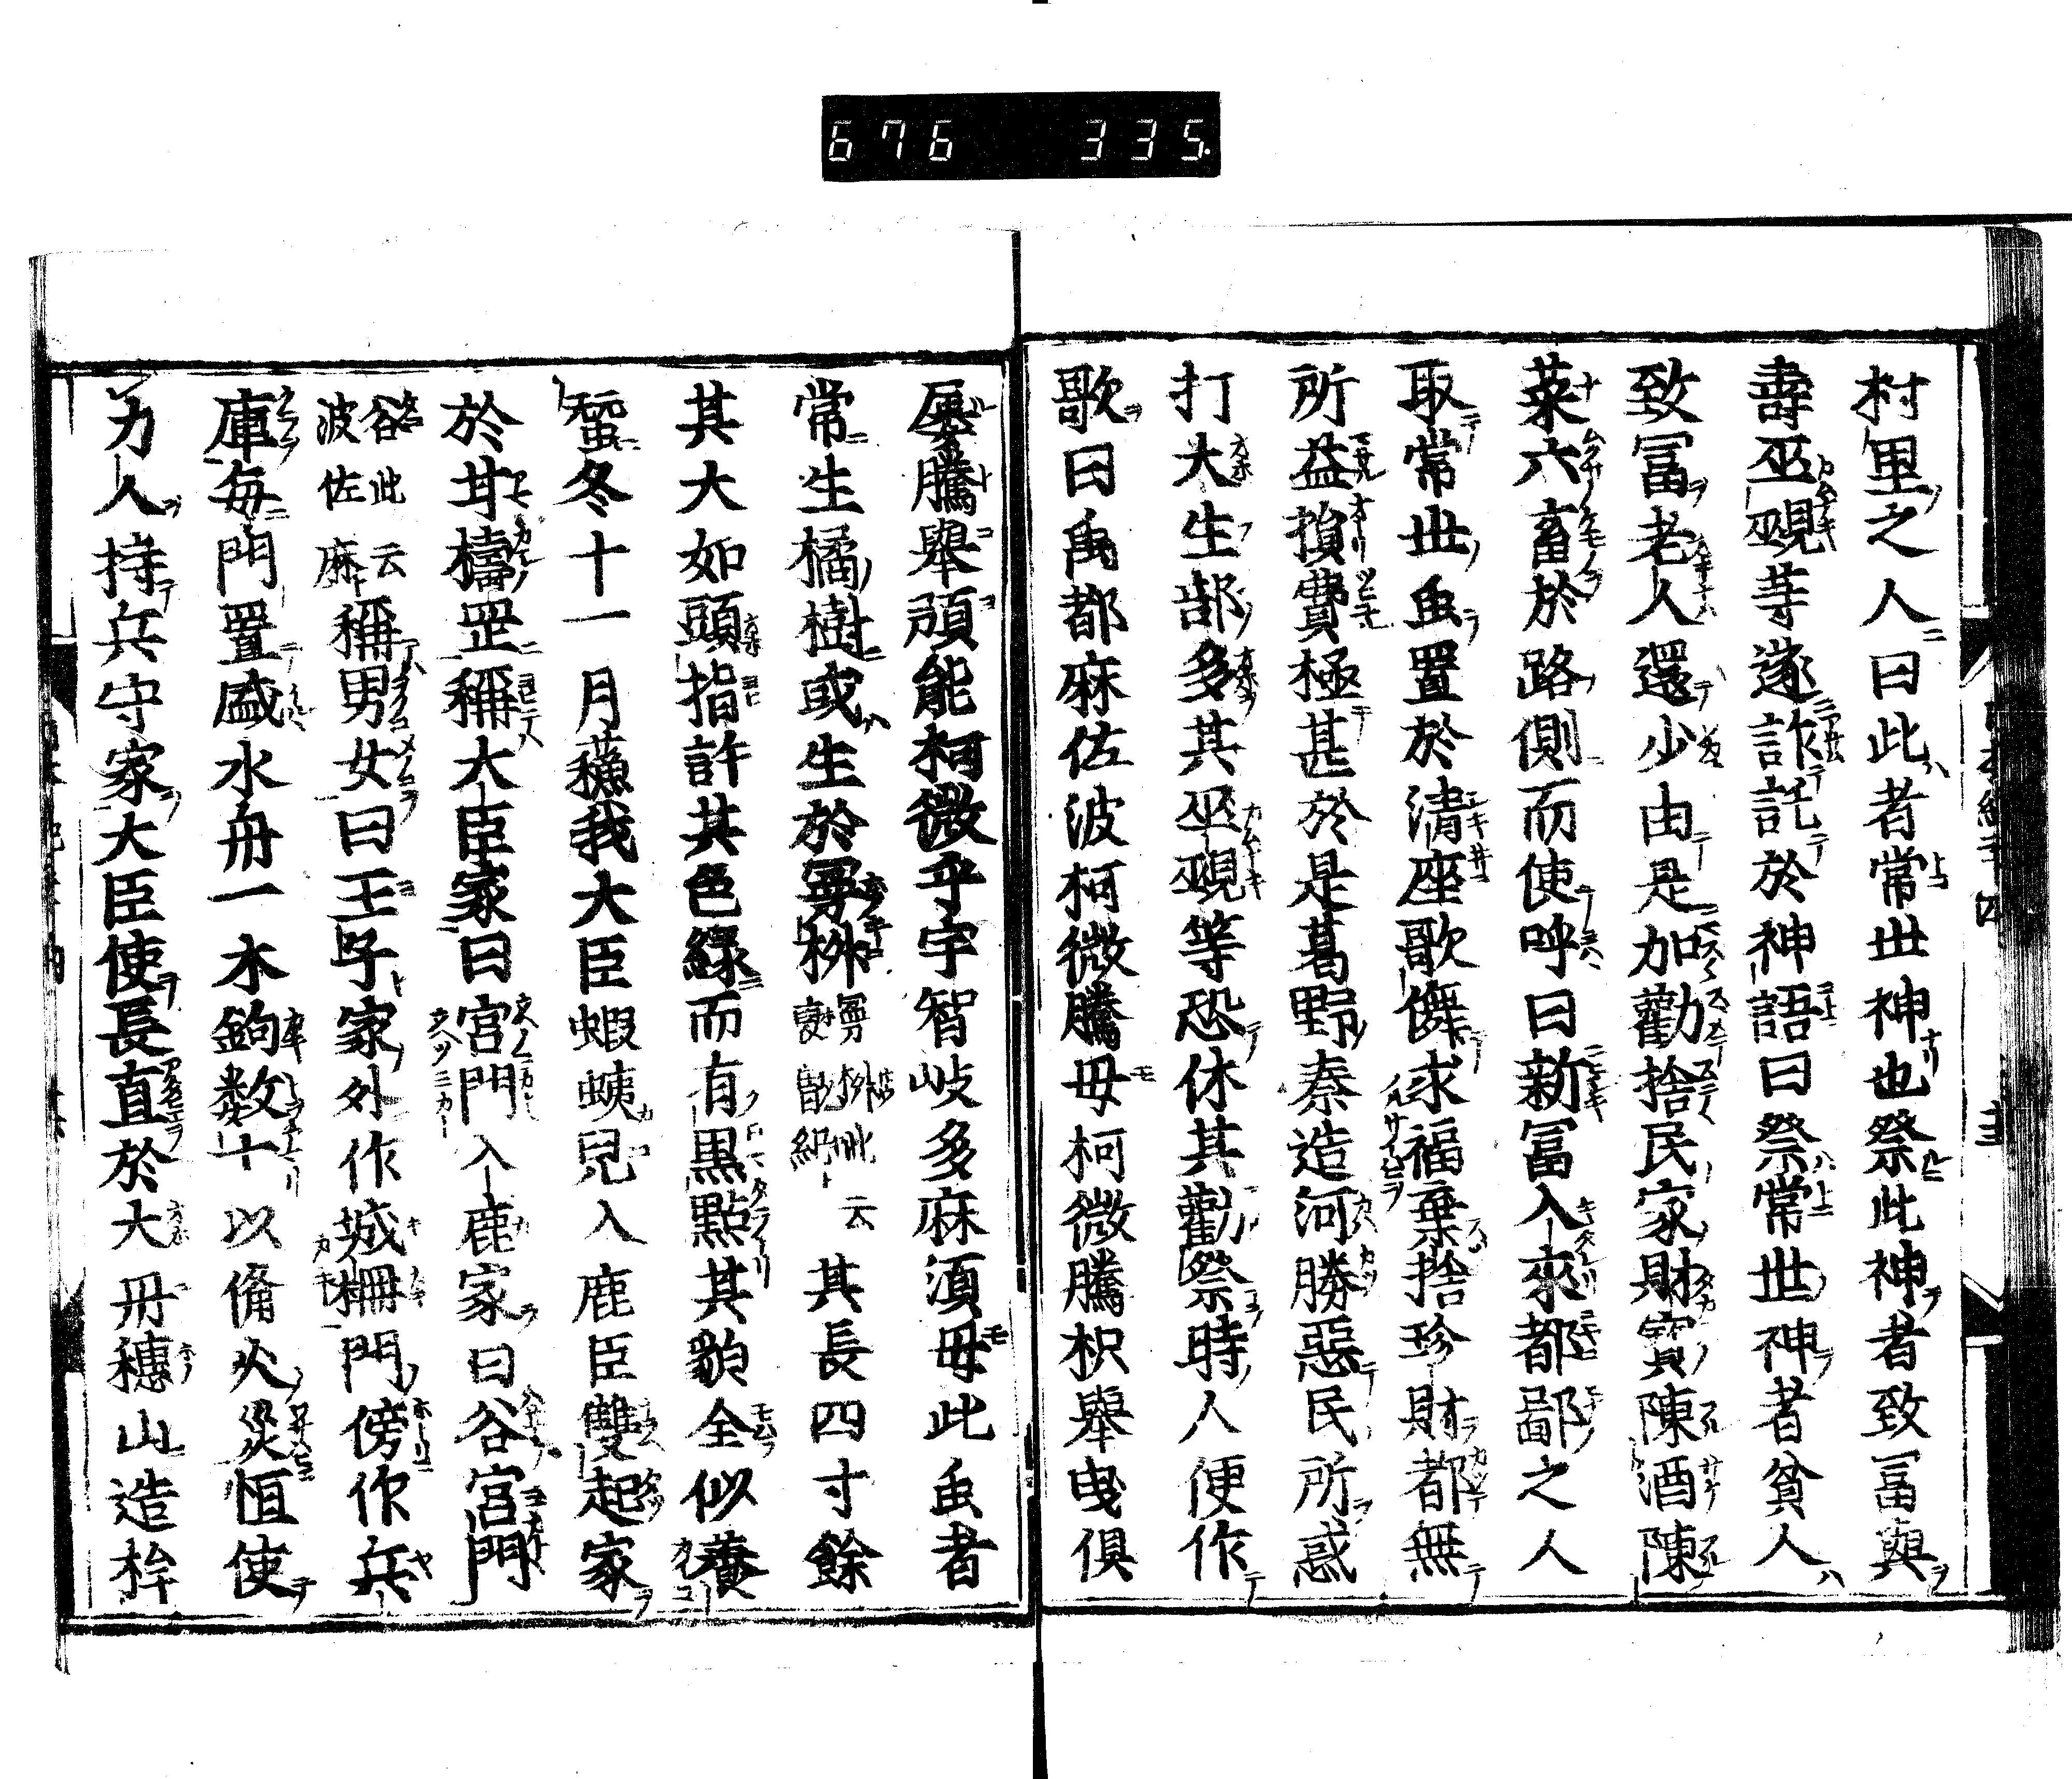 676 335.
村里之人曰此者常世神也祭此神者致冨與
壽巫覡等遂詐託於神語曰祭常世神者貧人
致冨老人還少由是加勸捨民家財寳陳酒陳
菜六畜於路側而使呼曰新冨入來都鄙之人
取常世虫置於清座歌儛求福棄捨珍財都無
所益損費極甚於是葛野秦造河勝惡民所惑
打大生部多其巫覡等恐休其勸祭時人便作
歌曰禹都麻佐波柯微騰母柯微騰枳舉曳倶
屢騰舉預能柯微乎宇智岐多麻湏母此虫者
常生橘樹或生於曼椒曼椒此云褒曾紀其長四寸餘
其大如頭指許其色緑而有黒點其貌全似養
蚕冬十一月蘓我大臣蝦蛦兒入鹿臣雙起家
於甘檮罡稱大臣家曰宮門入鹿家曰谷宮門
谷此云波佐麻稱男女曰王子家外作城柵門傍作兵
庫毎門置盛水舟一木鉤數十以備火災恒使
力人持兵守家大臣使長直於大丹穗山造桙